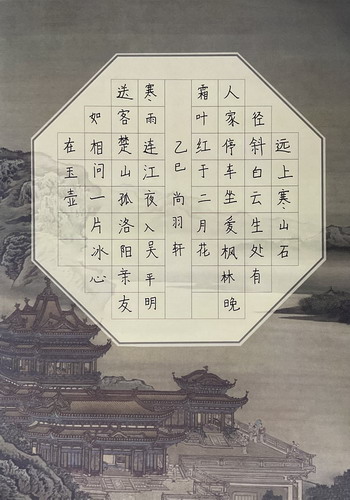 远上寒山石
径斜白云生处有
人家停车坐爱枫林晚
霜叶红于二月花
乙巳 尚羽轩
寒雨连江夜入吴平明
送客楚山孤洛阳亲友
如相问一片冰心
在玉壶